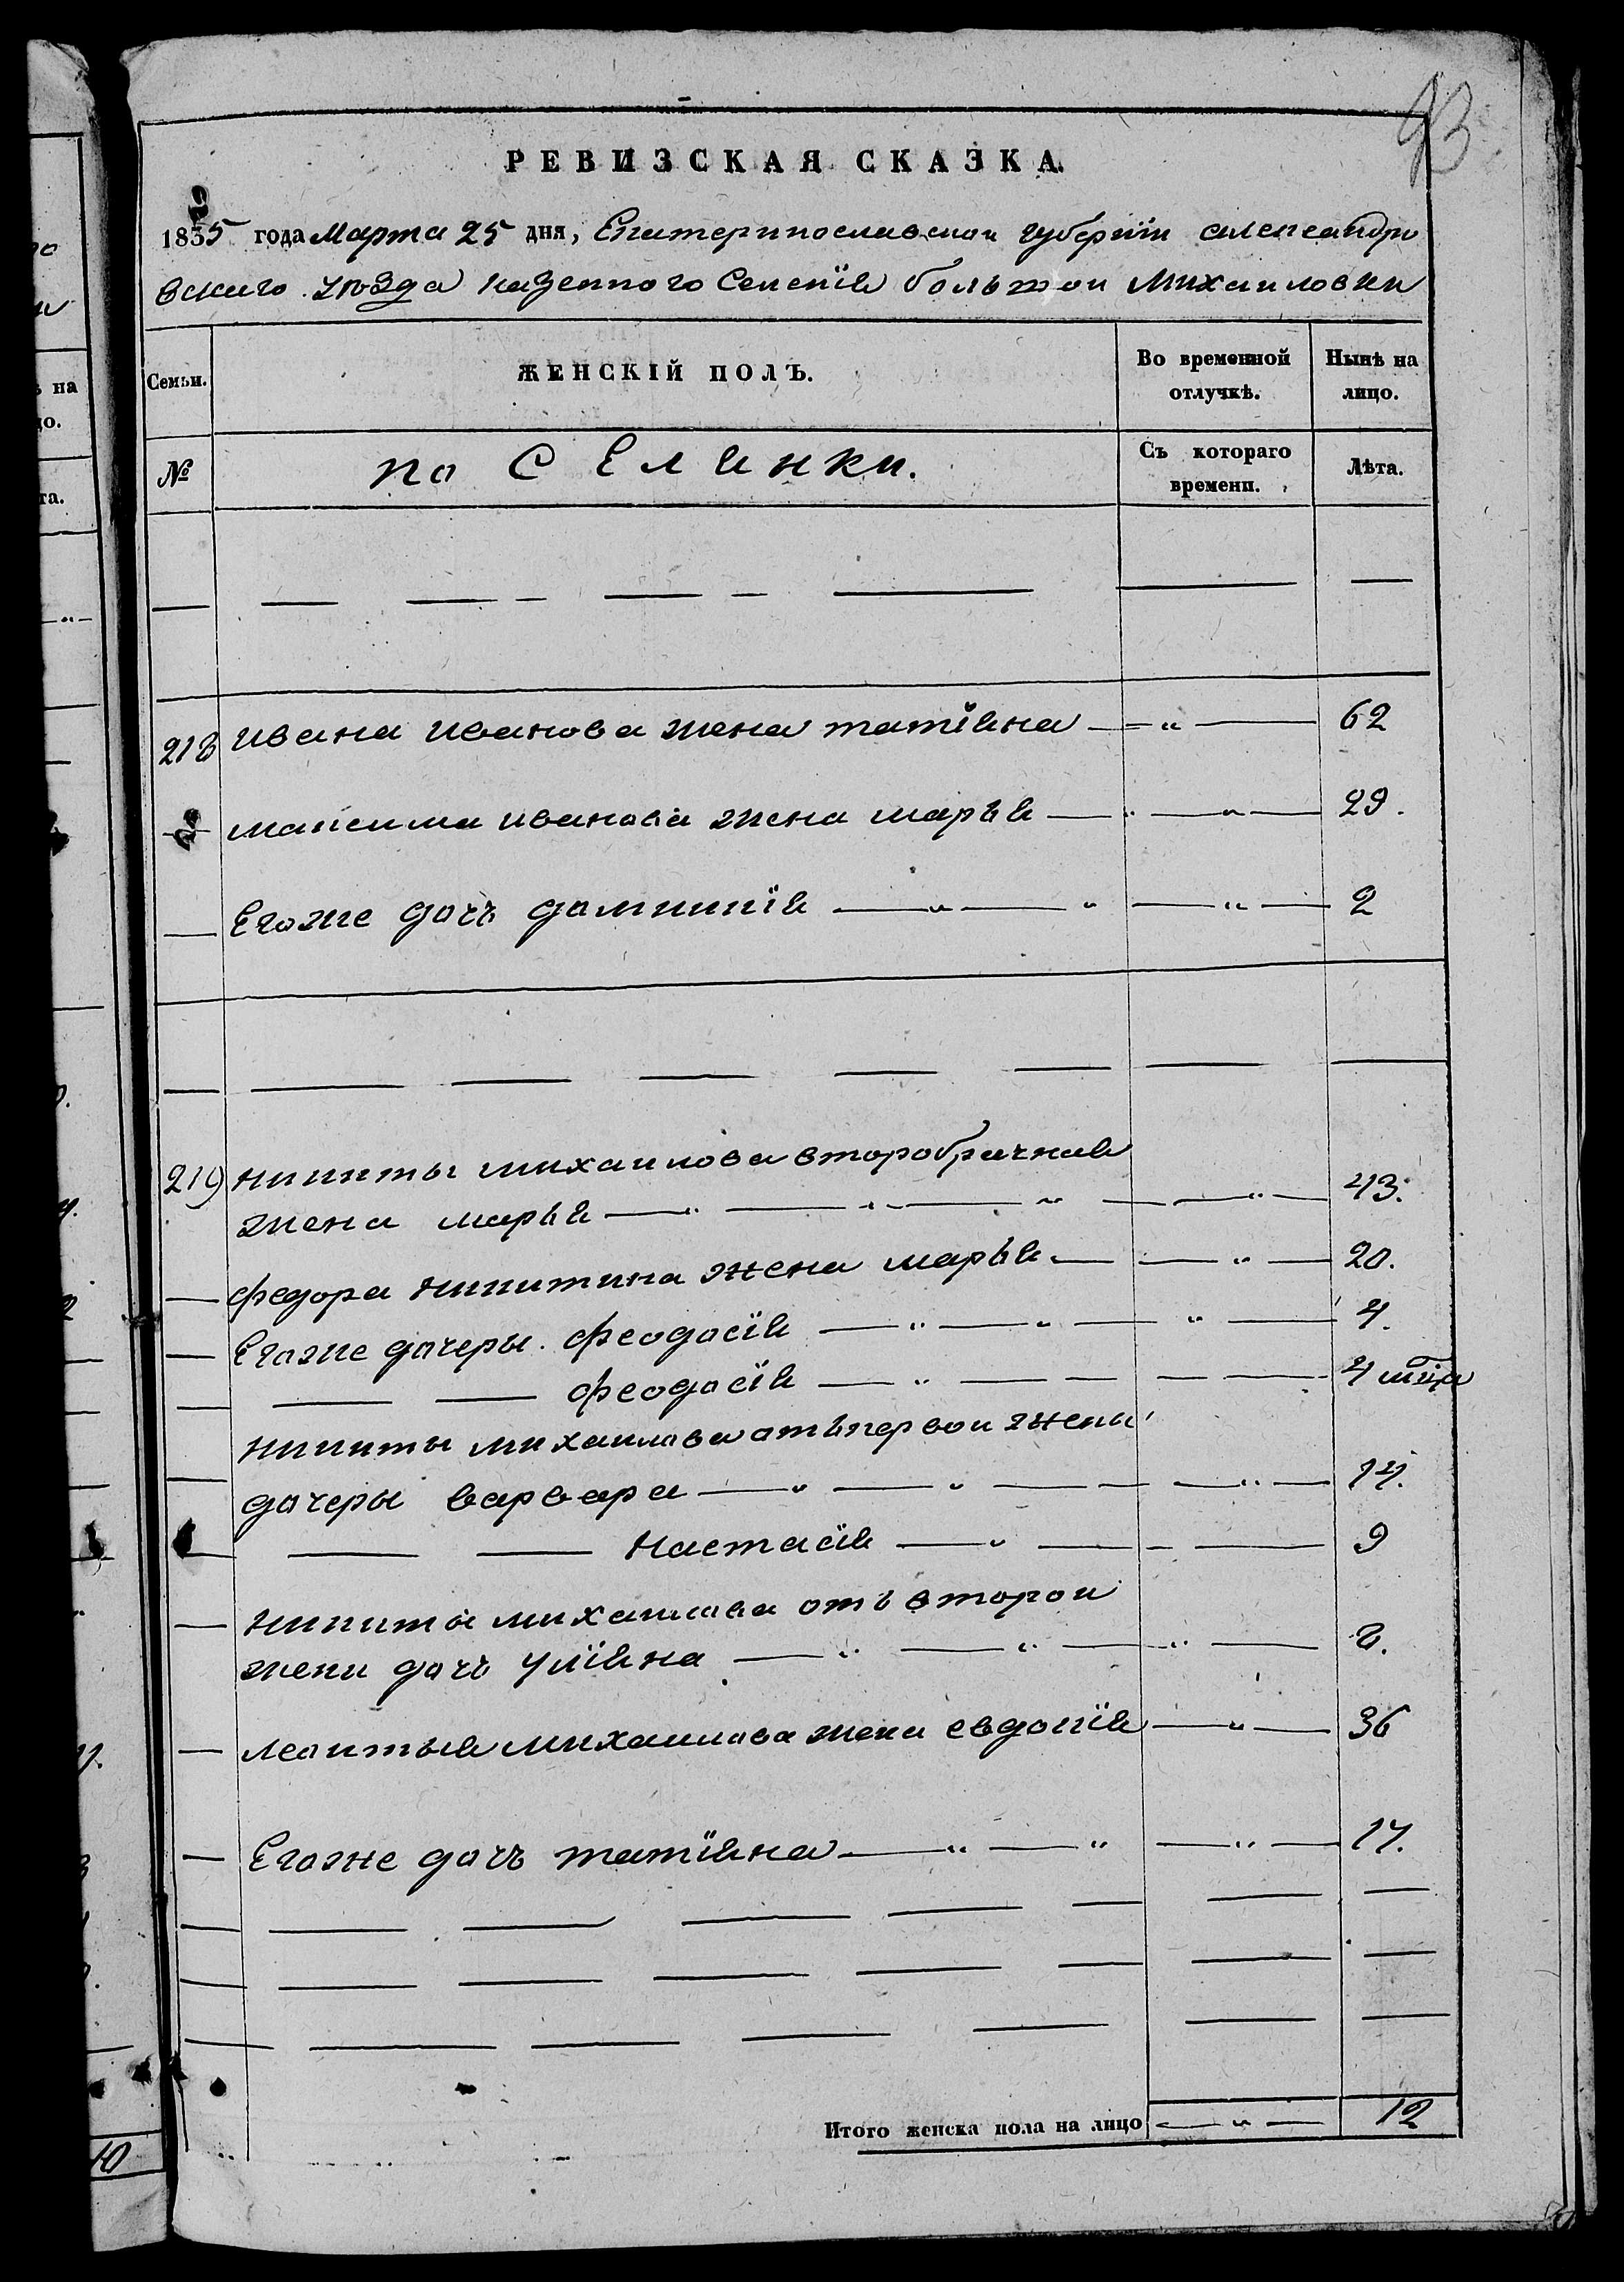 93
РЕВИЗСКАЯ СКАЗКА.
1835 года Марта 25 дня, Екатеринославской губернїи александро
вского уѣзда казенного Селенїя большой Михаиловки
Семьи. ЖЕНСКІЙ ПОЛЪ. Во временной отлучкѣ. Нынѣ на лицо.
№ по С Елянки. Съ котораго времени. Лѣта.
218 ивана иванова жена татїяна — „ — 62
максима иванова жена марья — „ — 29.
Егоже дочь домникїя — „ — 2
219 никиты михаилова второбрачная
жена марья — „ — 43.
федора никитина жена марья — „ — 20.
Егоже дочеры. феодосїя — „ — 4.
феодосїя — „ — 4 мца
никиты михаилова отъ первои жены
дочеры варвара — „ — 14.
настасїя — „ — 9
никиты михаилова отъ второи
жени дочь улїяна — „ — 2.
леонтья михаилова жена евдокїя — „ — 36
Егоже дочь татїяна — „ — 17.
Итого женска пола на лицо — „ — 12
10